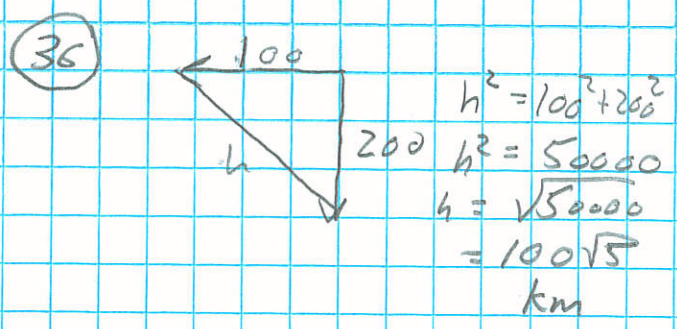 36
100
200
h
h² = 100² + 200²
h² = 50000
h = √50000
= 100√5
km